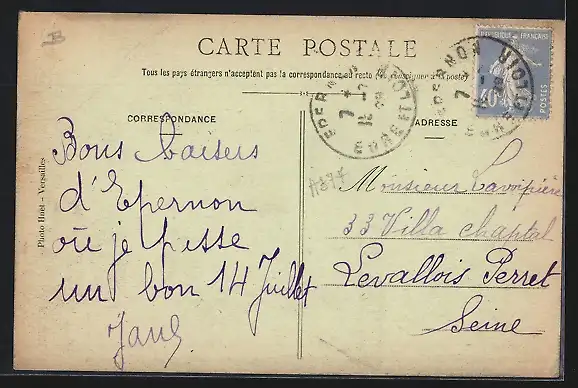 CARTE POSTALE
Tous les pays étrangers n'acceptent pas la correspondance au recto (se renseigner à la poste)
CORRESPONDANCE
ADRESSE
Photo Huet - Versailles
Bons Baisers
d'Epernon
où je passe
un bon 14 Juillet
Monsieur Lavoipière
33 Villa chaptal
Levallois Perret
Seine
EPERNON
EURE ET LOIR
EPERNON
REPUBLIQUE FRANÇAISE
40c
POSTES